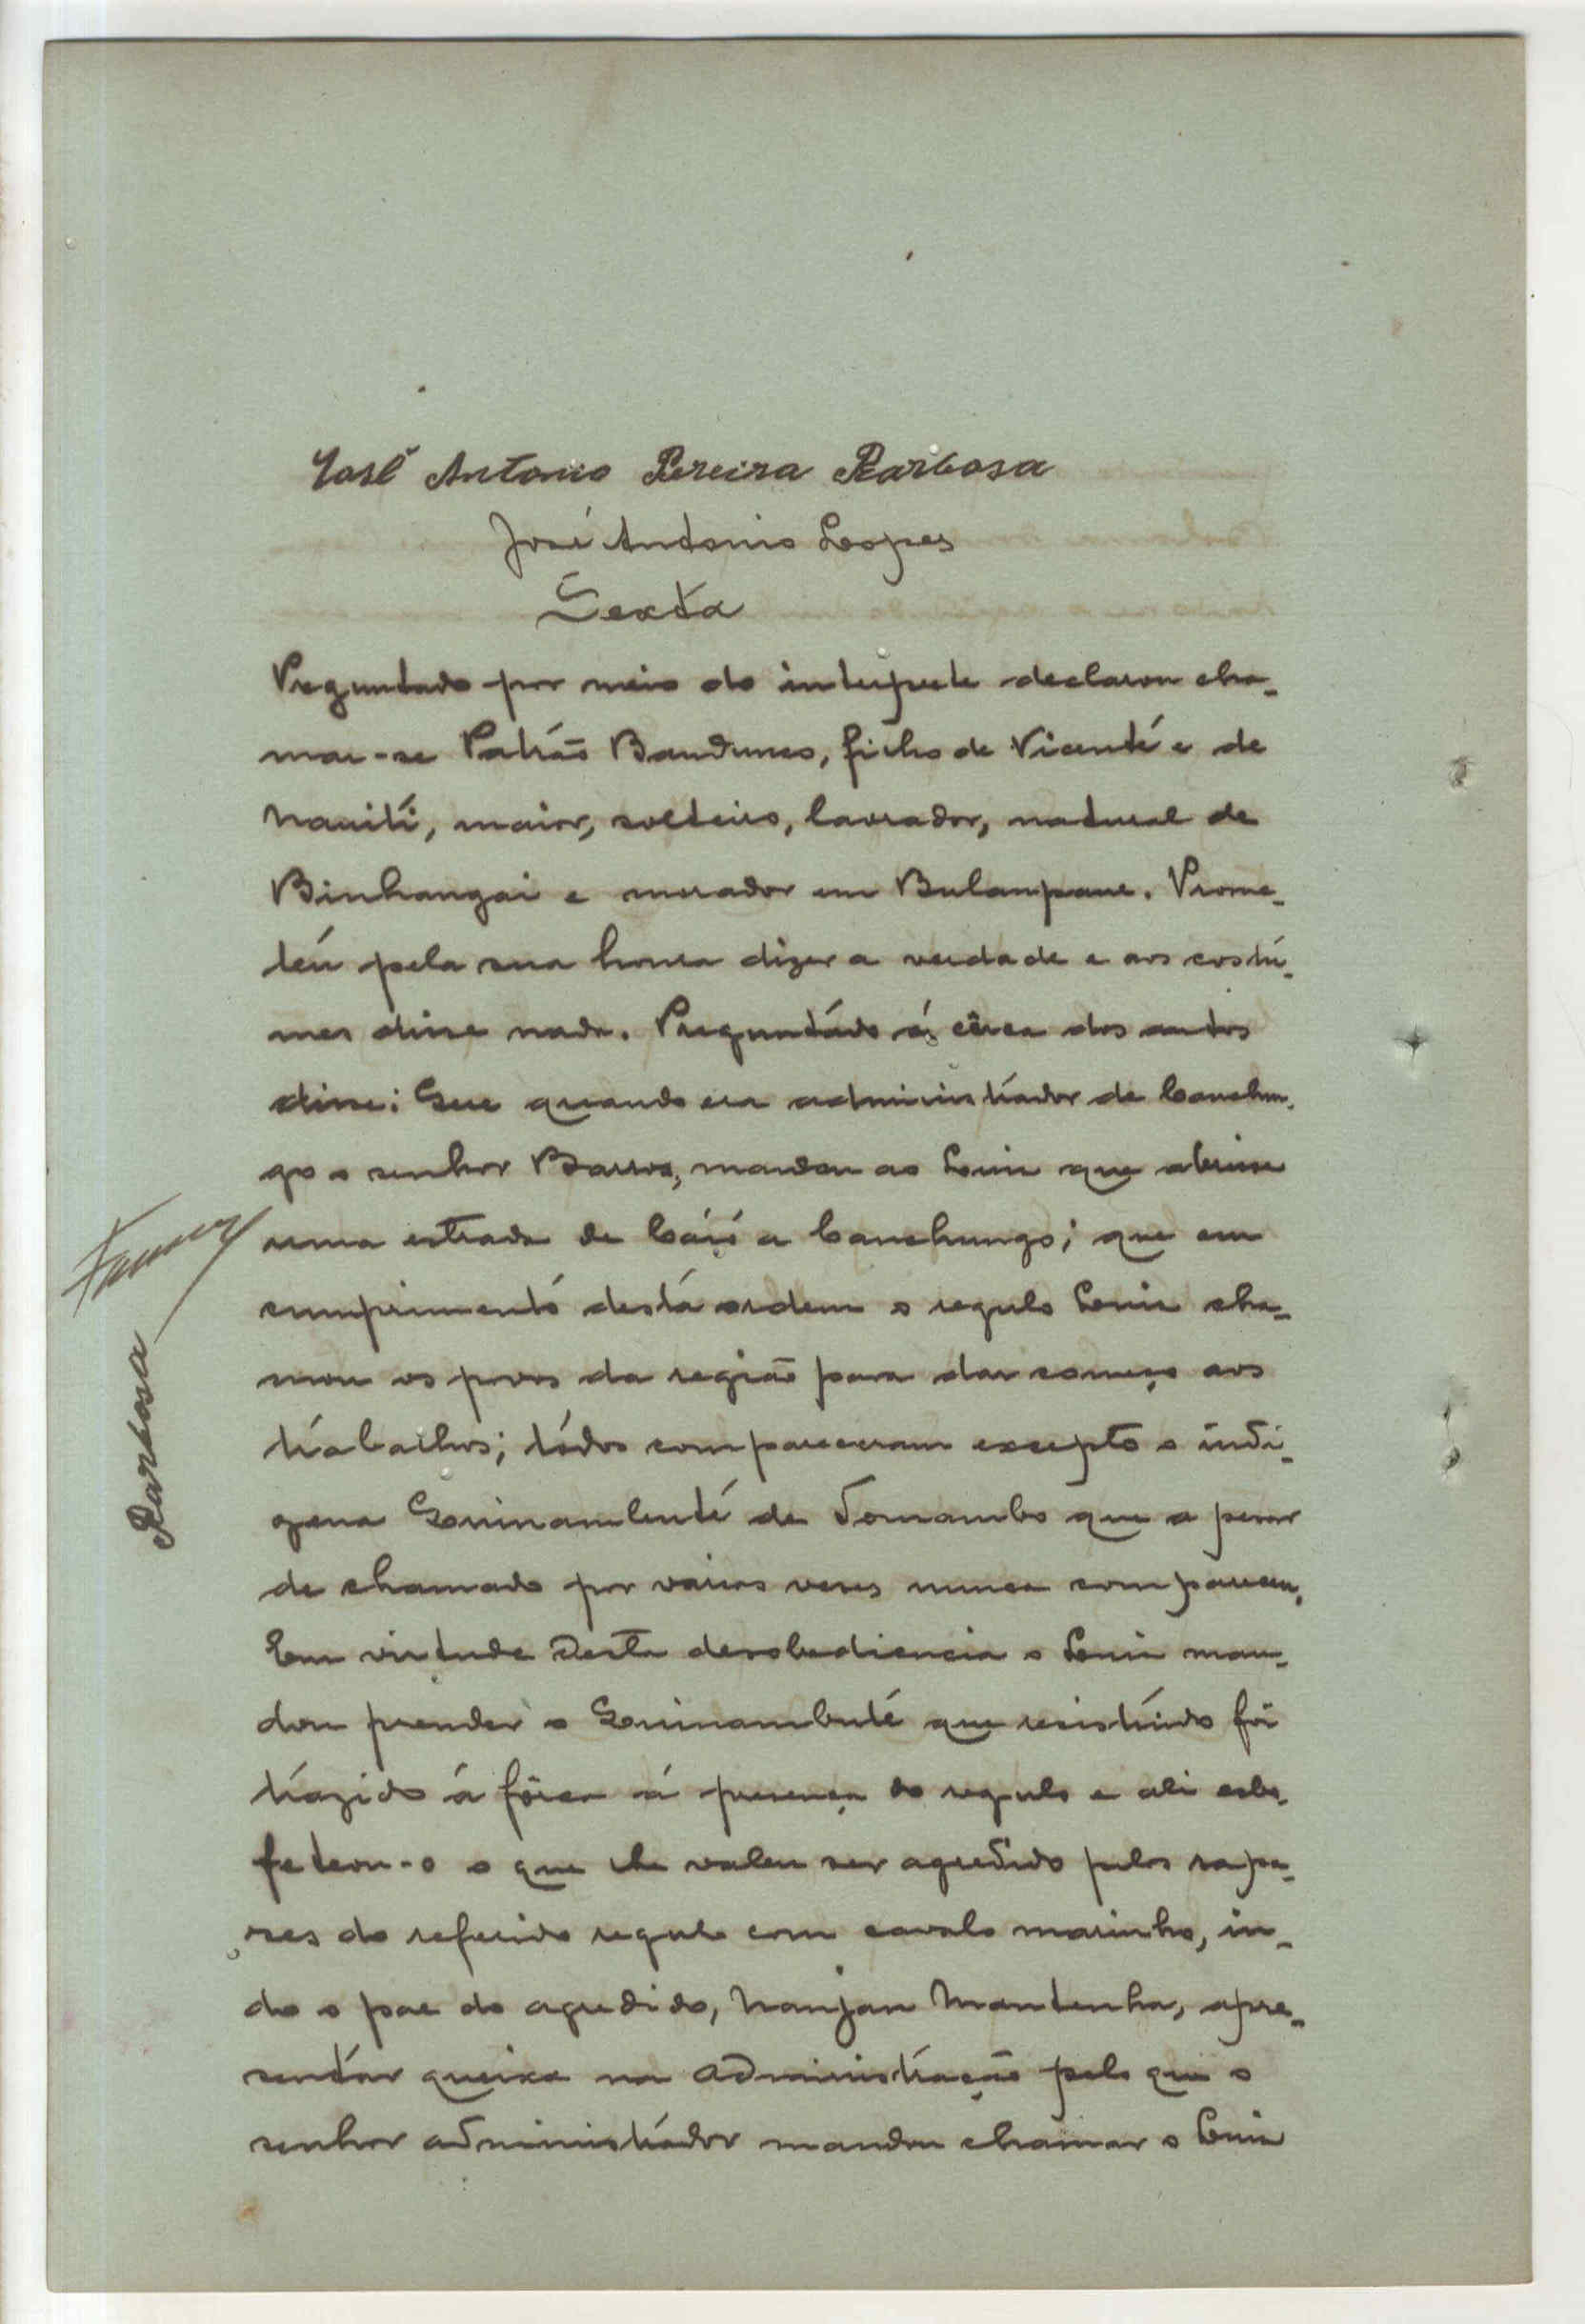 José Antonio Pereira Barbosa
José Antonio Lopes
Sexta
Preguntado por meio do interprete declarou cha-
mar-se Patrão Bandunco, filho de Vicenté e de
Naniti, maior, solteiro, lavrador, natural de
Binhangai e morador em Bulampane. Prome-
teu pela sua honra dizer a verdade e aos costu-
mes disse nada. Preguntado á cêrca dos autos
disse: Que quando era administrador de Canchun-
go o senhor Barros, mandou ao Luis que abrisse
uma estrada de Caió a Canchungo; que em
cumprimento desta ordem o regulo Luis cha-
mou os povos da região para dar começo aos
trabalhos; todos compareceram excepto o indi-
gena Guinambenté de Tomambo que a pesar
de chamado por varias veses nunca compareceu.
Em virtude desta desobediencia o Luis man-
dou prender o Guinambuté que resistindo foi
trazido á fôrça á presença do regulo e ali esbo-
feteou-o o que lhe valeu ser agredido pelos rapa-
zes do referido regulo com cavalo marinho, in-
do o pae do agredido, Nanjan Mantenha, apre-
sentar queixa na Administração pelo que o
senhor administrador mandou chamar o Luis
Barbosa